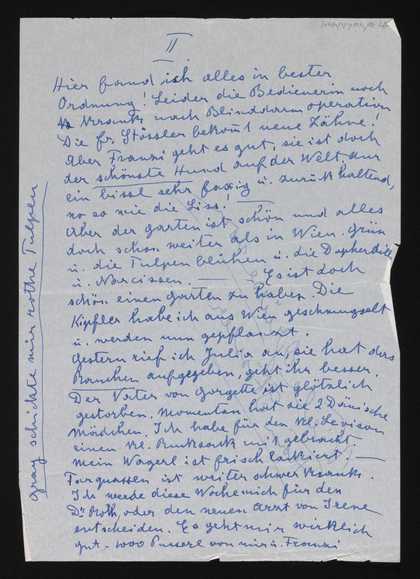 II
Hier fand ich alles in bester
Ordnung! Leider die Bedienerin noch
krank nach Blinddarm operation
Die fr. Stössler bekomt neue Zähne!
Aber Franzi geht es gut, sie ist doch
der schönste Hund auf der Welt, nur
ein bissl sehr faxig u. zurükhaltend,
no so wie die Liss!
Aber der Garten ist schön und alles
doch schon weiter als in Wien. Grün
u. die Tulpen blühen u. die
u. Narcissen. — Es ist doch
schön einen Garten zu haben. Die
Kipfler habe ich aus Wien geschmuggelt
u. werden nun gepflanzt.
Gestern rief ich Julia an, sie hat das
Rauchen aufgegeben, geht ihr besser.
Der Vater von Gorgette ist plötzlich
gestorben. Momentan hat sie 2 Dänische
Mädchen. Ich habe für den kl. Levison
einen kl. Ruksack mit gebracht.
Mein Wagerl ist frisch lackiert. —
Farguassen ist weiter schwer krank.
Ich werde diese Woche mich für den
Dr Roth oder den neuen Arzt von Irene
entscheiden. Es geht mir wirklich
gut. 1000 Pusserl von mir u. Franzi
Gray schickte mir rothe Tulpen